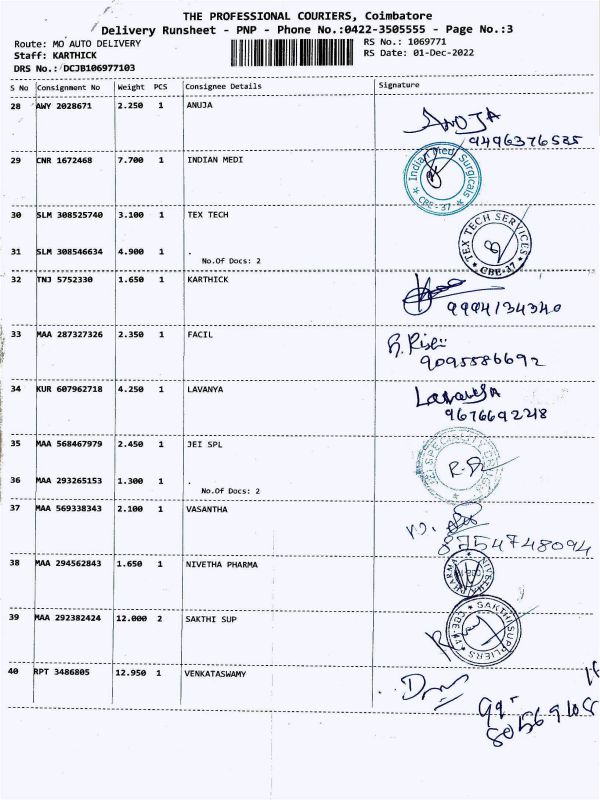 THE PROFESSIONAL COURIERS, Coimbatore
Delivery Runsheet - PNP - Phone No.:0422-3505555 - Page No.:3
Route: MO AUTO DELIVERY RS No.: 1069771
Staff: KARTHICK RS Date: 01-Dec-2022
DRS No.: DCJB106977103
S No Consignment No Weight PCS Consignee Details Signature
28 AWY 2028671 2.250 1 ANUJA ANUJA
9496376535
29 CNR 1672468 7.700 1 INDIAN MEDI Indian Med Surgicals
* CBE-37 *
30 SLM 308525740 3.100 1 TEX TECH TEX TECH SERVICES
* CBE-37 *
31 SLM 308546634 4.900 1 .
No.Of Docs: 2
32 TNJ 5752330 1.650 1 KARTHICK
9994134340
33 MAA 287327326 2.350 1 FACIL
9095586692
34 KUR 607962718 4.250 1 LAVANYA Lavanya
9676692248
35 MAA 568467979 2.450 1 JEI SPL
36 MAA 293265153 1.300 1 .
No.Of Docs: 2
37 MAA 569338343 2.100 1 VASANTHA
8754748094
38 MAA 294562843 1.650 1 NIVETHA PHARMA NIVETHA PHARMA
39 MAA 292382424 12.000 2 SAKTHI SUP SAKTHI SUPPLIERS
40 RPT 3486805 12.950 1 VENKATASWAMY